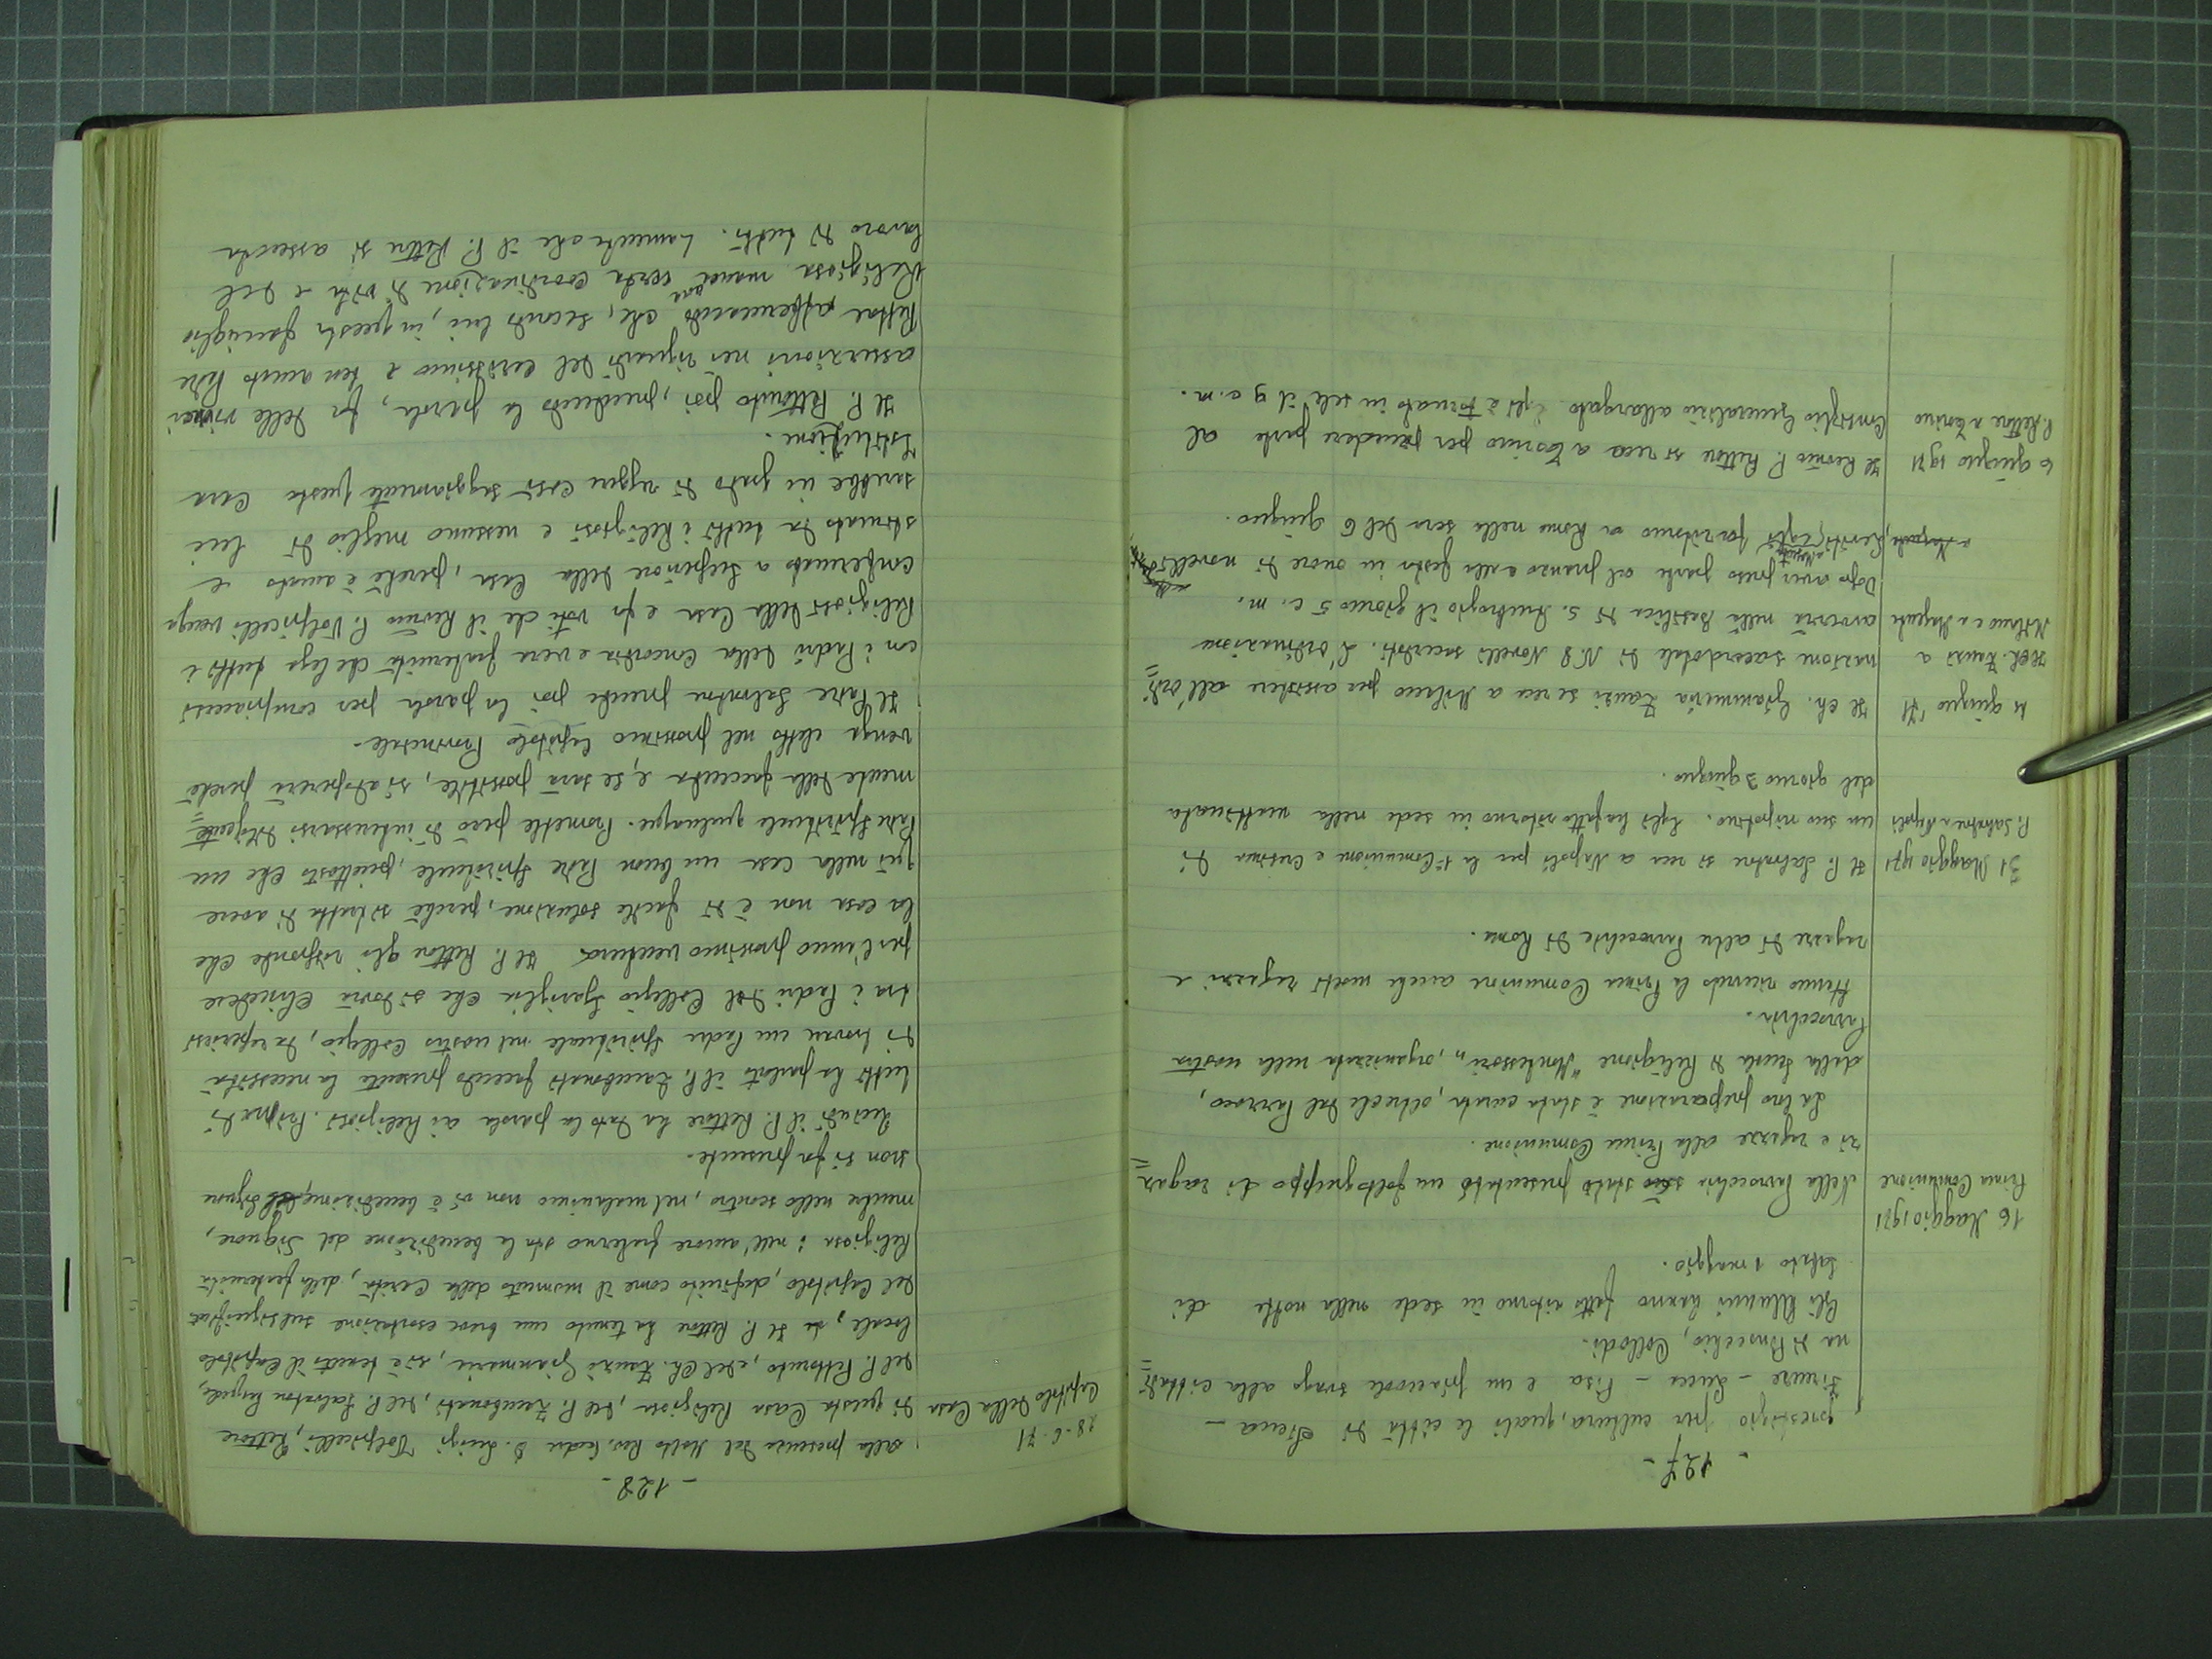 - 127 -
prestigio per cultura, quali le città di Siena -
Firenze - Lucca - Pisa - e un piacevole svago alla cittadi=
na di Pinocchio, Collodi.
Gli Alunni hanno fatto ritorno in sede nella notte di
Sabato 1 maggio.
16 Maggio 1971
Prima Comunione
Nella Parrocchia stato presentato un folto gruppo di ragaz=
zi e ragazze alla Prima Comunione.
La loro preparazione è stata curata, oltreché dal Parroco,
dalla Scuola di Religione "Montessori", organizzata nella nostra
Parrocchia.
Hanno ricevuto la Prima Comunione anche molti ragazzi e
ragazze di altre Parrocchie di Roma.
31 Maggio 1971
P. Salvatore a Napoli
Il P. Salvatore si reca a Napoli per la 1ª Comunione e Cresima di
un suo nipotino. Egli ha fatto ritorno in sede nella mattinata
del giorno 3 giugno.
4 giugno '71
Il Ch. Zausi a
Milano e a Magenta
Il Ch. Gianmaria Zausi se reca a Milano per assistere all'ordi=
nazione sacerdotale di N. 8 Novelli sacerdoti. L'ordinazione
avverrà nella Basilica di S. Ambrogio il giorno 5 c. m.
Dopo aver preso parte al pranzo e alla festa in onore di novelli
Leviti, Egli farà ritorno a Roma nella sera del 6 giugno.
6 giugno 1971
P. Rettore a Torino
Il Rev.mo P. Rettore si reca a Torino per prendere parte al
Consiglio Generalizio allargato. Egli è tornato in sede il 9 c. m.
- 128 -
28-6-71
Capitolo della Casa
Alla presenza del Molto Rev. Padre D. Luigi Volpicelli, Rettore
di questa Casa Religiosa, del P. Zambonati, del P. Salvatore Pasquale,
del P. Pettoruto, e del Ch. Zausi Gianmaria, si è tenuto il Capitolo
locale, Il P. Rettore ha tenuto una breve esortazione sul significato
del Capitolo, definito come il momento della Carità, della fraternità
Religiosa: nell'amore fraterno sta la benedizione del Signore,
mentre nello scontro, nel malanimo non vi è benedizione, il Signore
non si fa presente.
Quindi il P. Rettore ha dato la parola ai Religiosi. Prima di
tutti ha parlato il P. Zambonati facendo presente la necessità
di trovare un Padre Spirituale nel nostro Collegio, da reperirsi
tra i Padri del Collegio che si dovrà chiedere
per l'anno prossimo venturo. Il P. Rettore gli risponde che
la cosa non è di facile soluzione, perché si tratta di avere
qui nella casa un buon Padre Spirituale, piuttosto che un
Padre Spirituale qualunque. Promette però di interessarsi diligente=
mente della faccenda e, se sarà possibile, si adopererà perché
venga eletto nel prossimo Capitolo Provinciale.
Il Padre Salvatore prende poi la parola per compiacersi
con i Padri della concordia e vera fraternità che lega tutti i
Religiosi della Casa e fa voti che il Rev.mo P. Volpicelli venga
confermato a Superiore della Casa, perché è amato e
stimato da tutti i Religiosi e nessuno meglio di lui
sarebbe in grado di reggere così saggiamente questa Casa
Istituzione.
Il P. Pettoruto poi, prendendo la parola, fa delle
asserzioni nei riguardi del carissimo e ben amato Padre
Rettore affermando che, secondo lui, in questa famiglia
Religiosa manca una certa coordinazione di vita e del
lavoro di tutti. Lamenta che il P. Rettore si assenta